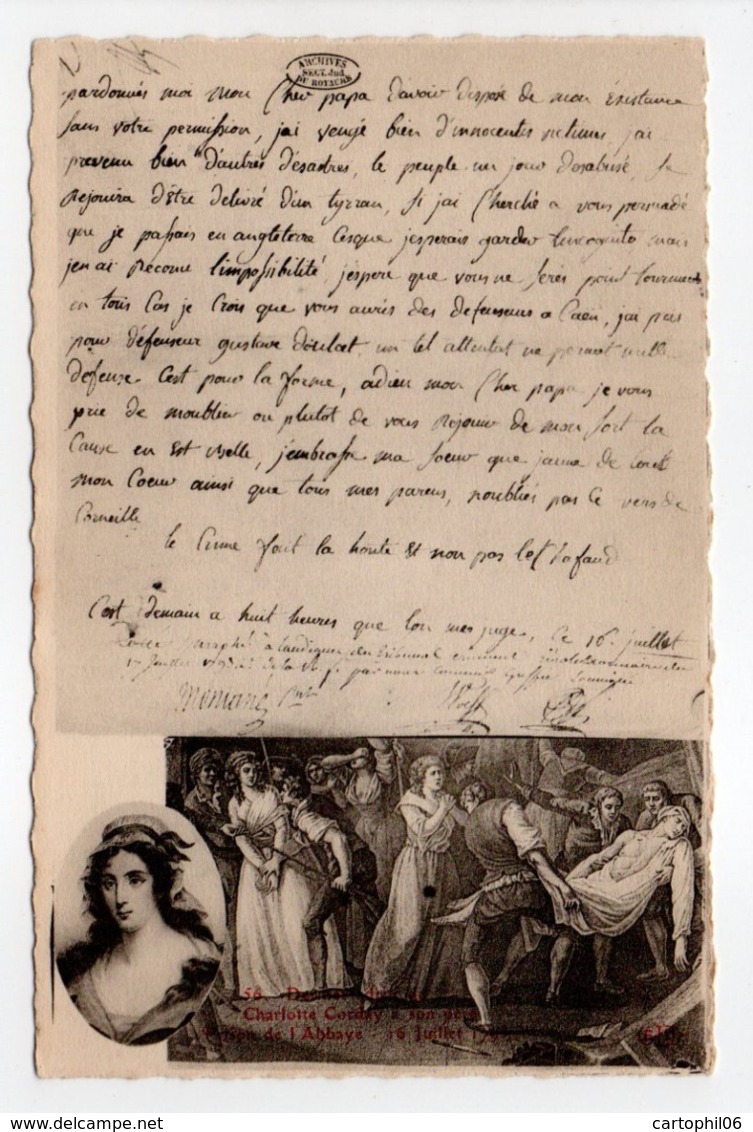 ARCHIVES
SECT. Jud.
DU ROYAUME
pardonnés moi mon Cher papa d'avoir disposé de mon existance
sans votre permission, jai vengé bien d'innocentes victimes, jai
prevenu bien d'autres désastres, le peuple un jour désabusé, se
Rejouira d'être délivré d'un tyrran, Si jai Cherché a vous persuadé
que je passais en angleterre Cesque jesperais garder lincognito mais
jen ai Reconu l'impossibilité, jéspère que vous ne serés point tourmenté
en tous Cas je Crois que vous aurés des defenseurs a Caen, jai pris
pour défenseur gustave doulcet, un tel attentat ne permet nulle
defense Cest pour la forme, adieu mon Cher papa je vous
prie de moublier ou plutot de vous Rejouir de mon sort la
Cause en est belle, jembrasse ma soeur que jaime de tout
mon Coeur ainsi que tous mes parens, noubliés pas Ce vers de
Corneille
le Crime fait la honte et non pas lechafaud
C'est demain a huit heures que lon me juge, Ce 16 juillet
à laudience du tribunal criminel révolutionnaire du
17 juillet par nous
58
Charlotte Corday à son père
Prison de l'Abbaye - 16 Juillet
cartophil06